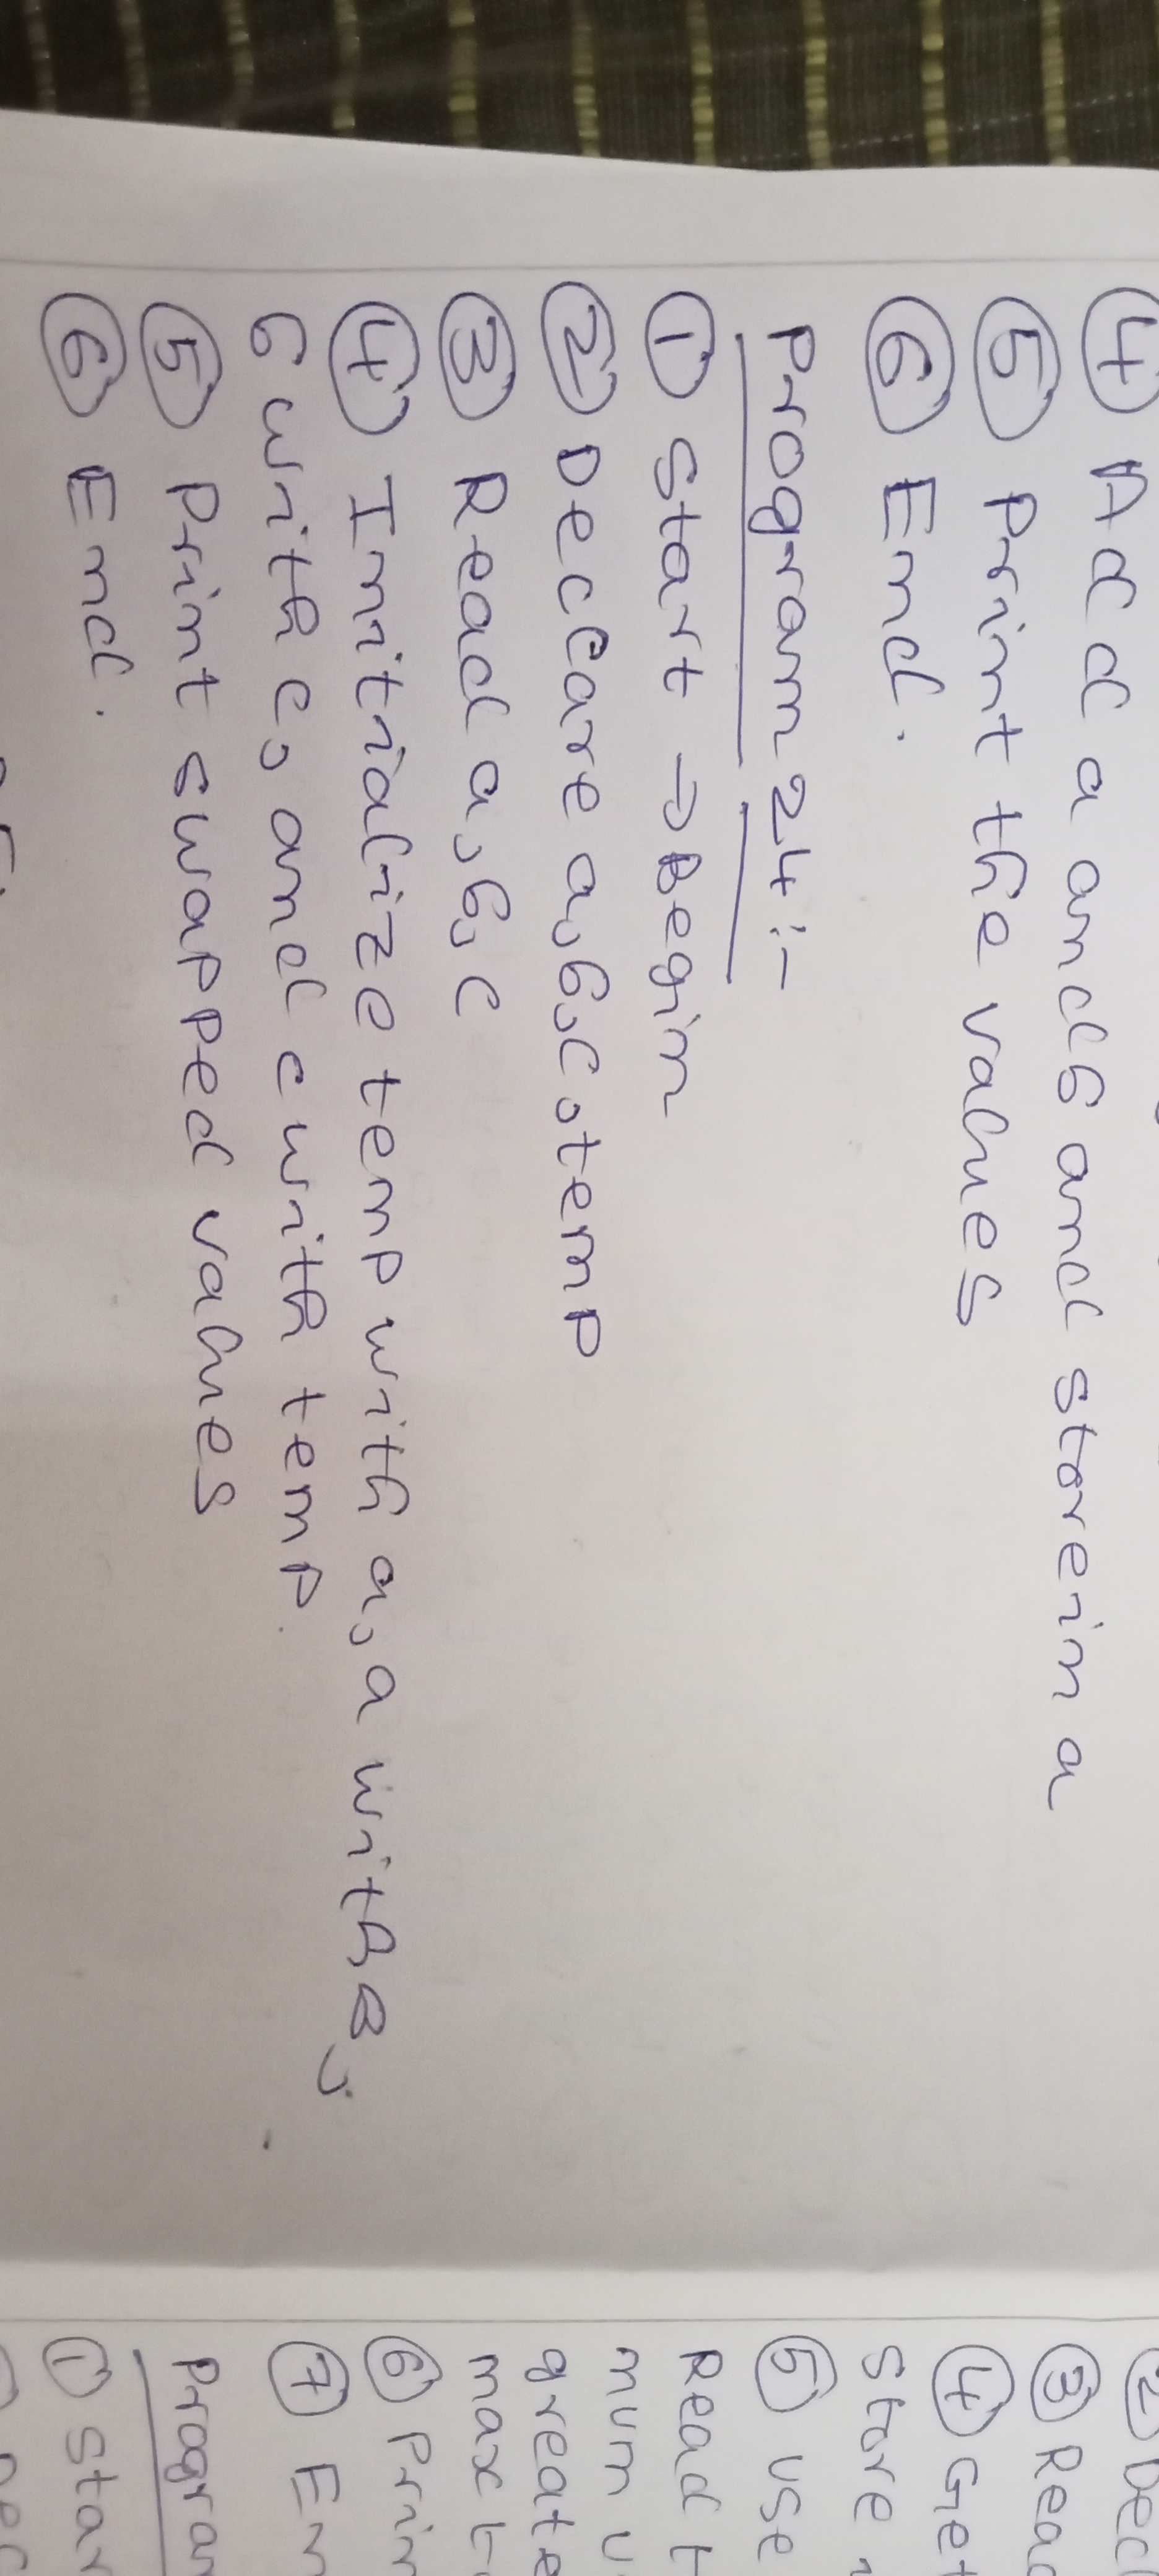 ④ Add a and b and store in a
⑤ Print the values
⑥ End.
Program 24:-
① Start → Begin
② Declare a,b,c,temp
③ Read a,b,c
④ Initialize temp with a, a with B,
b with c, and c with temp.
⑤ Print swapped values
⑥ End.
③ Read
④ Get
Store
⑤ Use
Read
max
⑦
Program
① Star